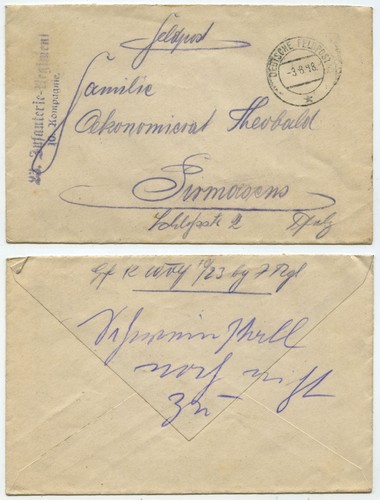 Feldpost
DEUTSCHE FELDPOST
-3.8.18.
23. Infanterie-Regiment
10. Kompagnie.
Familie
Ökonomierat Theobald
Pirmasens
Schloßstr 2 Pfalz
10/23
noch nicht
zu